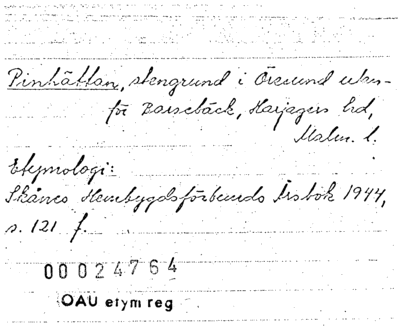 Pinhättan, stengrund i Öresund utan-
för Barsebäck, Harjagers hd,
Malm. l.
Etymologi:
Skånes Hembygdsförbunds Årsbok 1944,
s. 121 f.
00024764
OAU etym reg